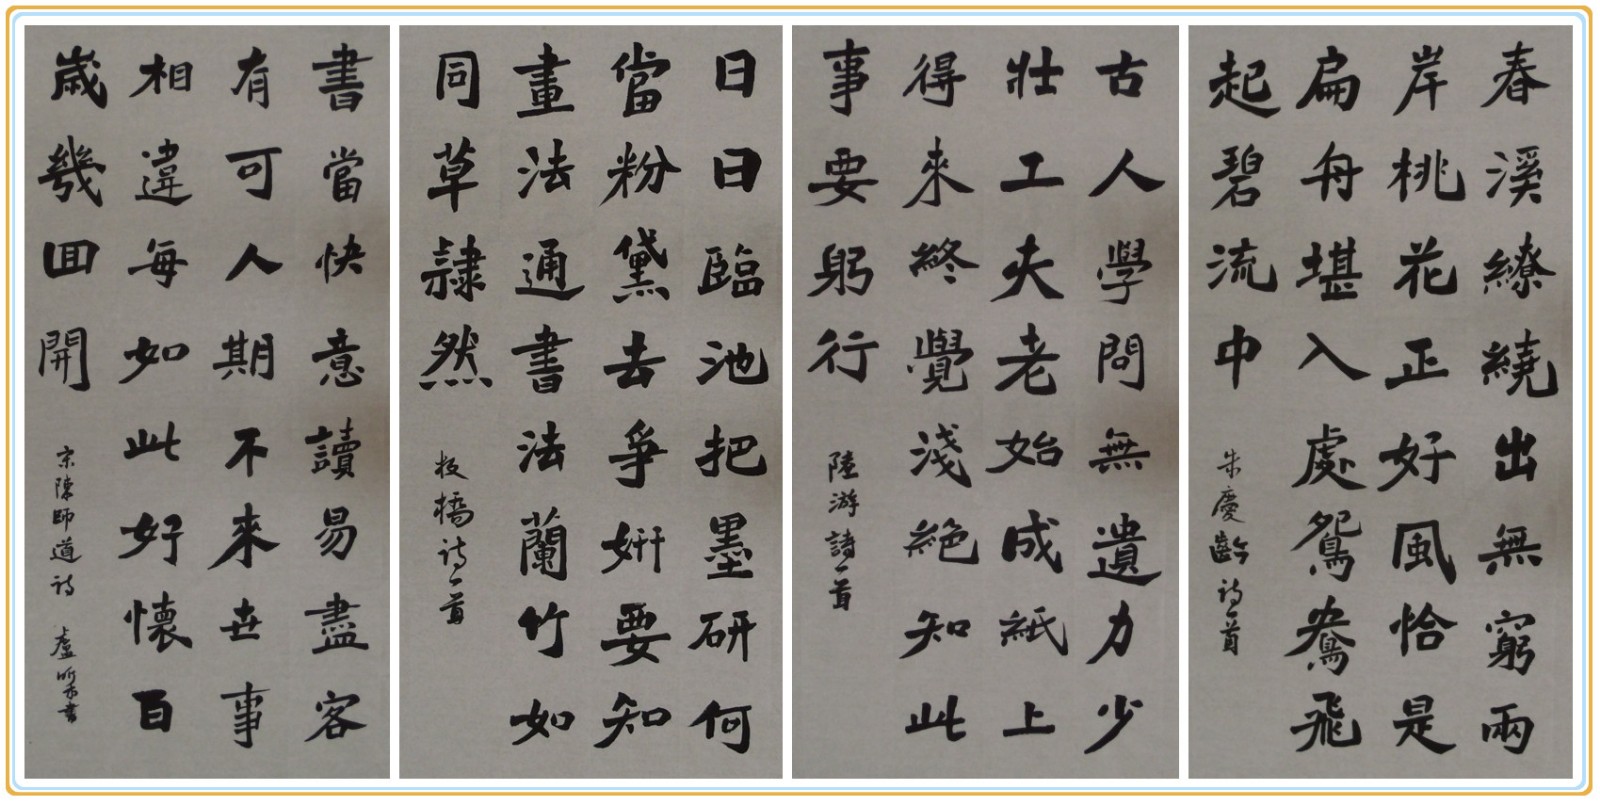 春溪繚繞出無窮兩
岸桃花正好風恰是
扁舟堪入處鴛鴦飛
起碧流中
朱慶齡詩一首
古人學問無遺力少
壯工夫老始成紙上
得來終覺淺絕知此
事要躬行
陸游詩一首
日日臨池把墨研何
當粉黛去爭妍要知
畫法通書法蘭竹如
同草隸然
板橋詩一首
書當快意讀易盡客
有可人期不來世事
相違每如此好懷百
歲幾回開
宋陳師道詩
盧書